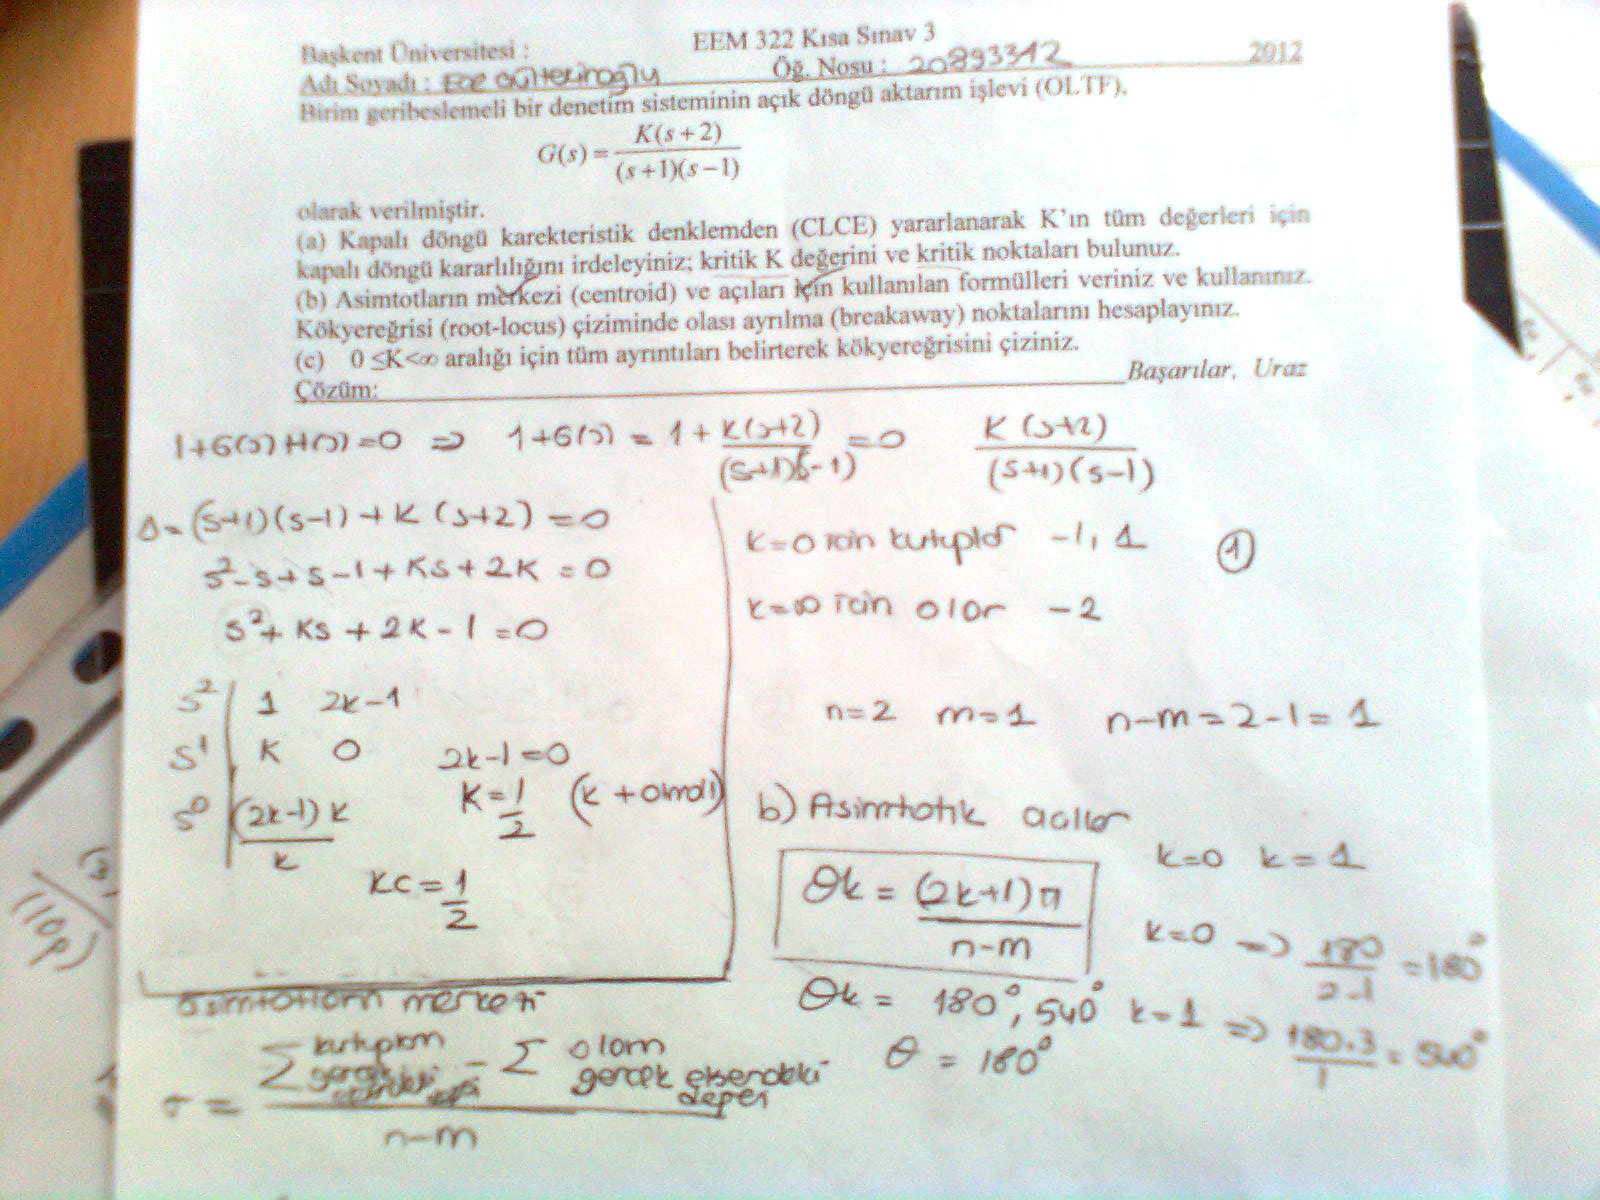 EEM 322 Kısa Sınav 3
Başkent Üniversitesi : 2012
Adı Soyadı : Öğ. Nosu : 20893312
Birim geribeslemeli bir denetim sisteminin açık döngü aktarım işlevi (OLTF),
G(s) = K(s+2) / (s+1)(s−1)
olarak verilmiştir.
(a) Kapalı döngü karekteristik denklemden (CLCE) yararlanarak K'ın tüm değerleri için
kapalı döngü kararlılığını irdeleyiniz; kritik K değerini ve kritik noktaları bulunuz.
(b) Asimtotların merkezi (centroid) ve açıları için kullanılan formülleri veriniz ve kullanınız.
Kökyereğrisi (root-locus) çiziminde olası ayrılma (breakaway) noktalarını hesaplayınız.
(c) 0 ≤K<∞ aralığı için tüm ayrıntıları belirterek kökyereğrisini çiziniz.
Başarılar, Uraz
Çözüm:
1+G(s)H(s)=0 ⇒ 1+G(s) = 1 + K(s+2) / (s+1)(s-1) = 0
K(s+2) / (s+1)(s-1)
Δ = (s+1)(s-1) + K(s+2) = 0
s²-s+s-1+Ks+2K = 0
s²+Ks+2K-1=0
s² | 1 2k-1
s¹ | K 0
s⁰ | (2k-1)k / k
2k-1=0
K=1/2 (k + olmalı)
Kc=1/2
k=0 icin kutuplar -1, 1
①
k=∞ icin olor -2
n=2 m=1 n-m=2-1=1
b) Asimtotik acilar
k=0 k=1
θk = (2k+1)π / n-m
k=0 ⇒ 180 / 2-1 = 180°
θk = 180°, 540°
k=1 ⇒ 180.3 / 1 = 540°
θ = 180°
asimtotların merkezi
σ = Σ kutupların gerçek - Σ olarn gercek eksendeki degeri / n-m
(10p)